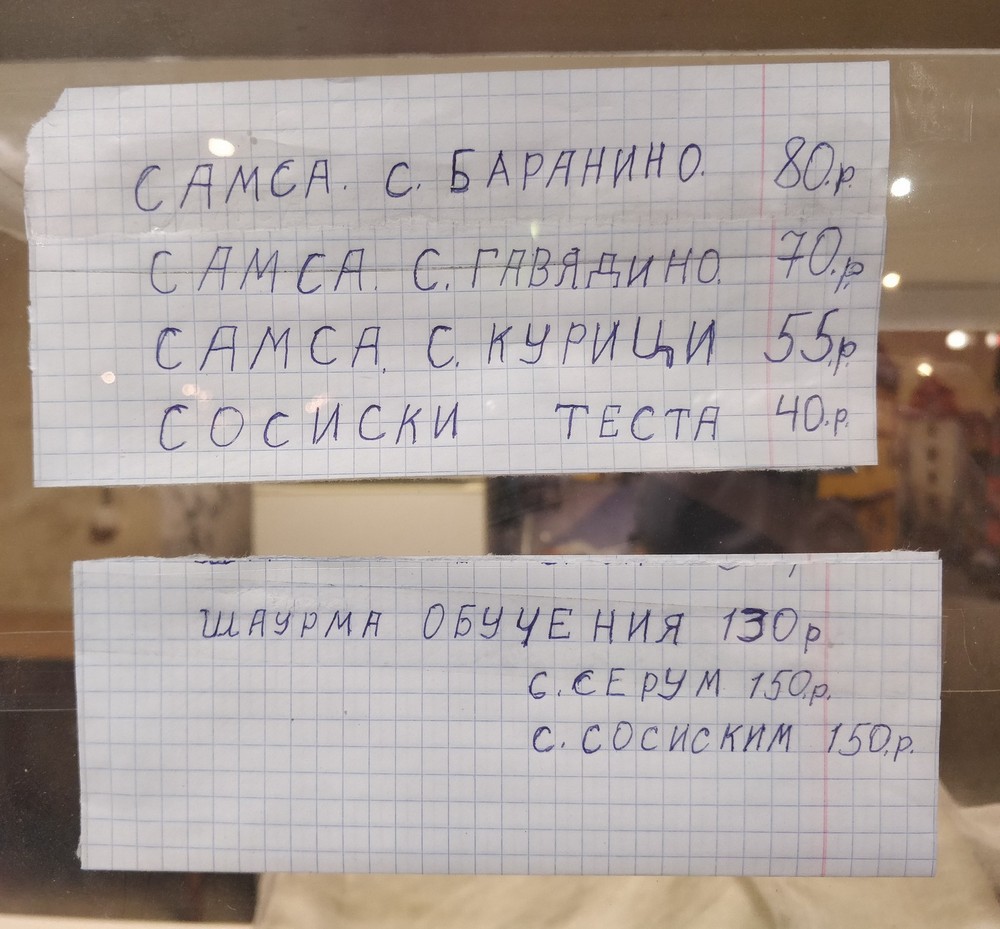 САМСА. С. БАРАНИНО. 80.р.
САМСА. С. ГАВЯДИНО. 70.р.
САМСА. С. КУРИЦИ 55.р.
СОСИСКИ ТЕСТА 40.р.
ШАУРМА ОБУЧЕНИЯ 130р
С. СЕРУМ 150.р.
С. СОСИСКИМ 150.р.